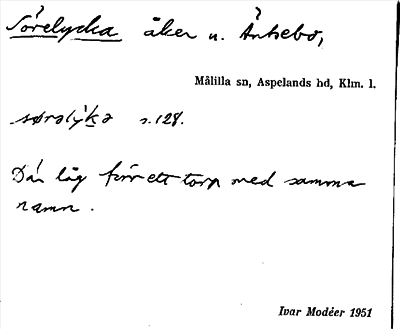 Sörelycka åker u. Änkebo,
Målilla sn, Aspelands hd, Klm. l.
sørəlyḱə s. 128.
Där låg förr ett torp med samma
namn.
Ivar Modéer 1951